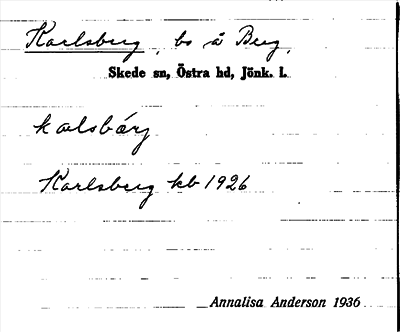 Karlsberg, bs å Berg.
Skede sn, Östra hd, Jönk. l.
kalsbärj
Karlsberg kb 1926
Annalisa Anderson 1936